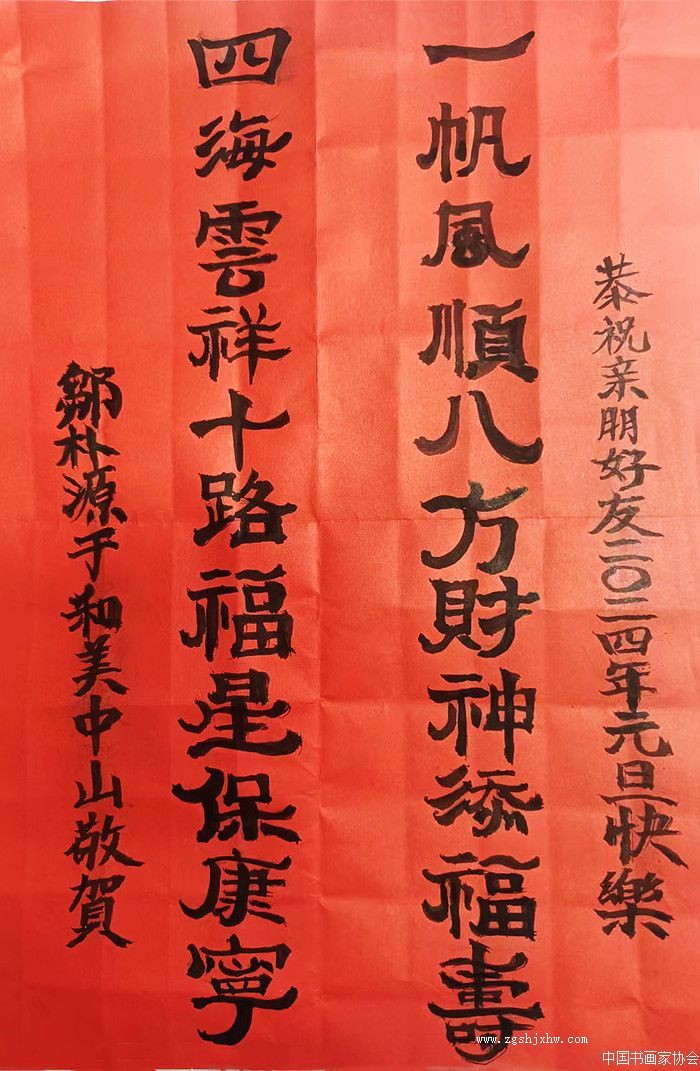 恭祝亲朋好友二〇二四年元旦快樂
一帆風順八方財神添福壽
四海雲祥十路福星保康寧
鄒朴源于和美中山敬賀
www.zgshjxhw.com
中国书画家协会